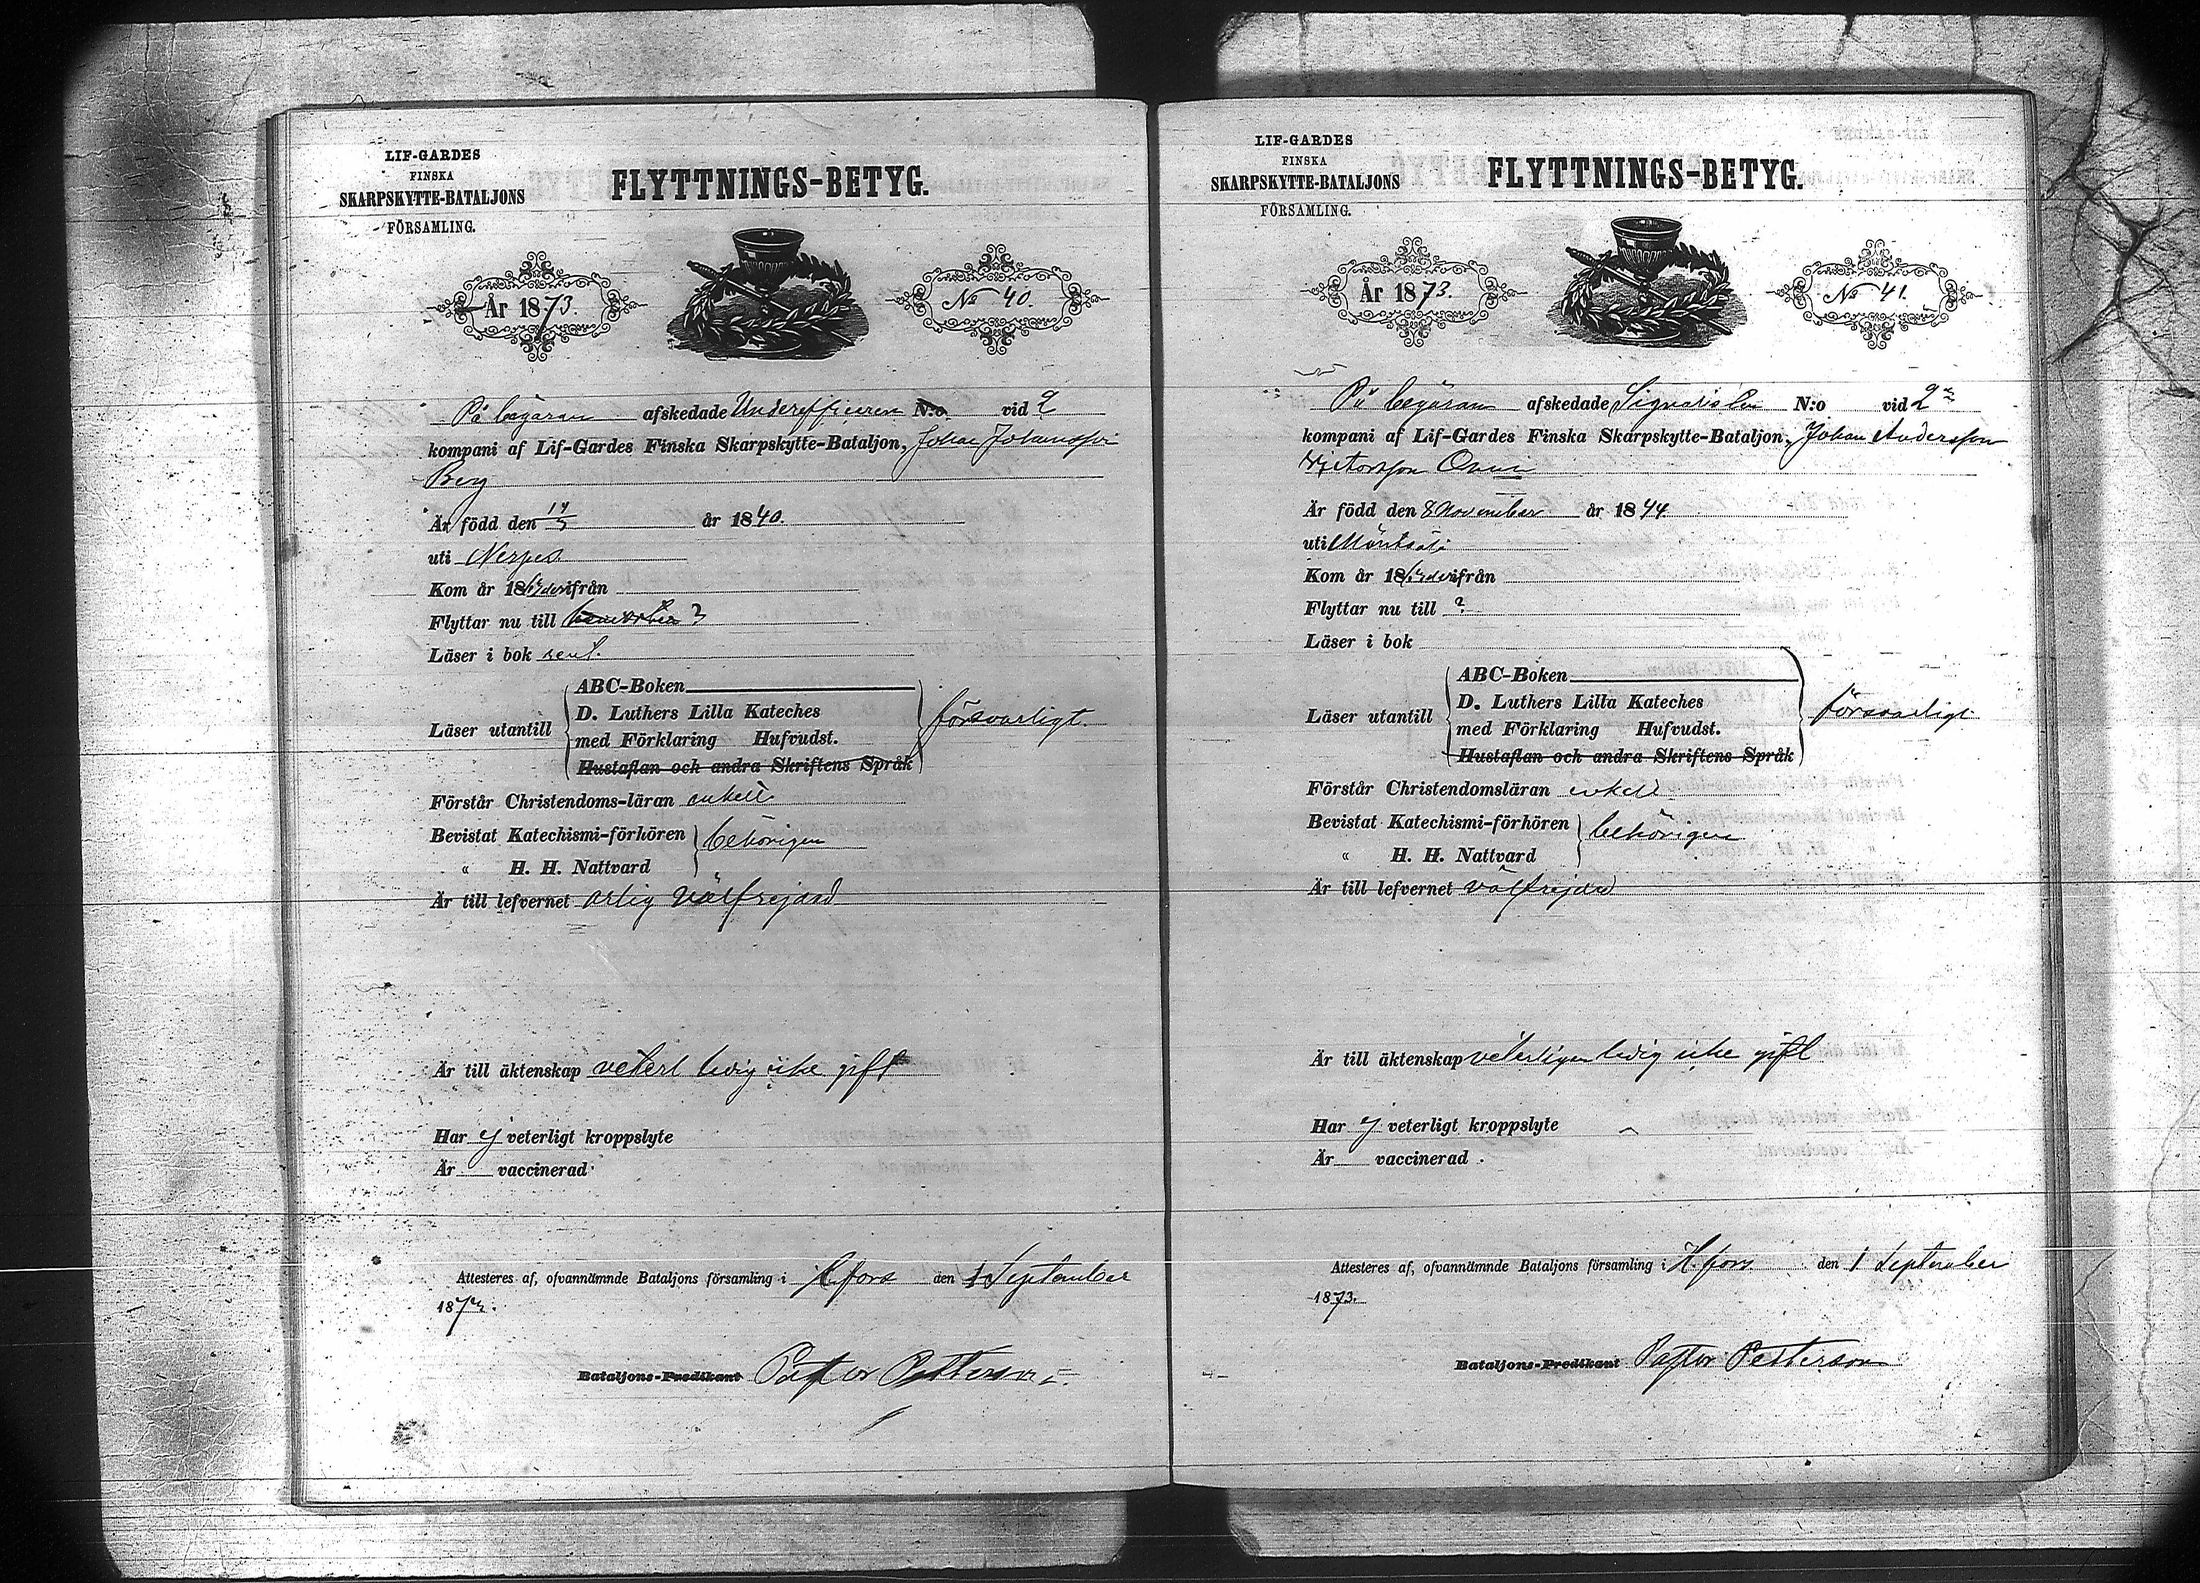 LIF-GARDES
FINSKA
SKARPSKYTTE-BATALJONS
FÖRSAMLING.
FLYTTNINGS-BETYG.
År 1873.
No 40.
På begäran afskedade Underofficeren N:o vid 2
kompani af Lif-Gardes Finska Skarpskytte-Bataljon, Johan Johansson
Berg
Är född den 14/5 år 1840.
uti Nerpes
Kom år 18 från
Flyttar nu till ?
Läser i bok rent.
Läser utantill
ABC-Boken
D. Luthers Lilla Kateches
med Förklaring Hufvudst.
Hustaflan och andra Skriftens Språk
försvarligt.
Förstår Christendoms-läran enkelt
Bevistat Katechismi-förhören
" H. H. Nattvard
behörigen
Är till lefvernet ärlig välfrejdad
Är till äktenskap veterl ledig icke gift
Har ej veterligt kroppslyte
Är vaccinerad
Attesteres af, ofvannämnde Bataljons församling i H.fors den 1 September
1873.
Bataljons-Predikant Pastor Petterson
LIF-GARDES
FINSKA
SKARPSKYTTE-BATALJONS
FÖRSAMLING.
FLYTTNINGS-BETYG.
År 1873.
No 41.
På begäran afskedade Signalisten N:o vid 2
kompani af Lif-Gardes Finska Skarpskytte-Bataljon, Johan Andersson
Är född den 8 November år 1844
uti Mäntsälä
Kom år 18 från
Flyttar nu till ?
Läser i bok
Läser utantill
ABC-Boken
D. Luthers Lilla Kateches
med Förklaring Hufvudst.
Hustaflan och andra Skriftens Språk
försvarligt
Förstår Christendomsläran enkelt
Bevistat Katechismi-förhören
" H. H. Nattvard
behörigen
Är till lefvernet välfrejdad
Är till äktenskap veterligen ledig icke gift
Har ej veterligt kroppslyte
Är vaccinerad
Attesteres af, ofvannämnde Bataljons församling i H.fors den 1 September
1873.
Bataljons-Predikant Pastor Petterson